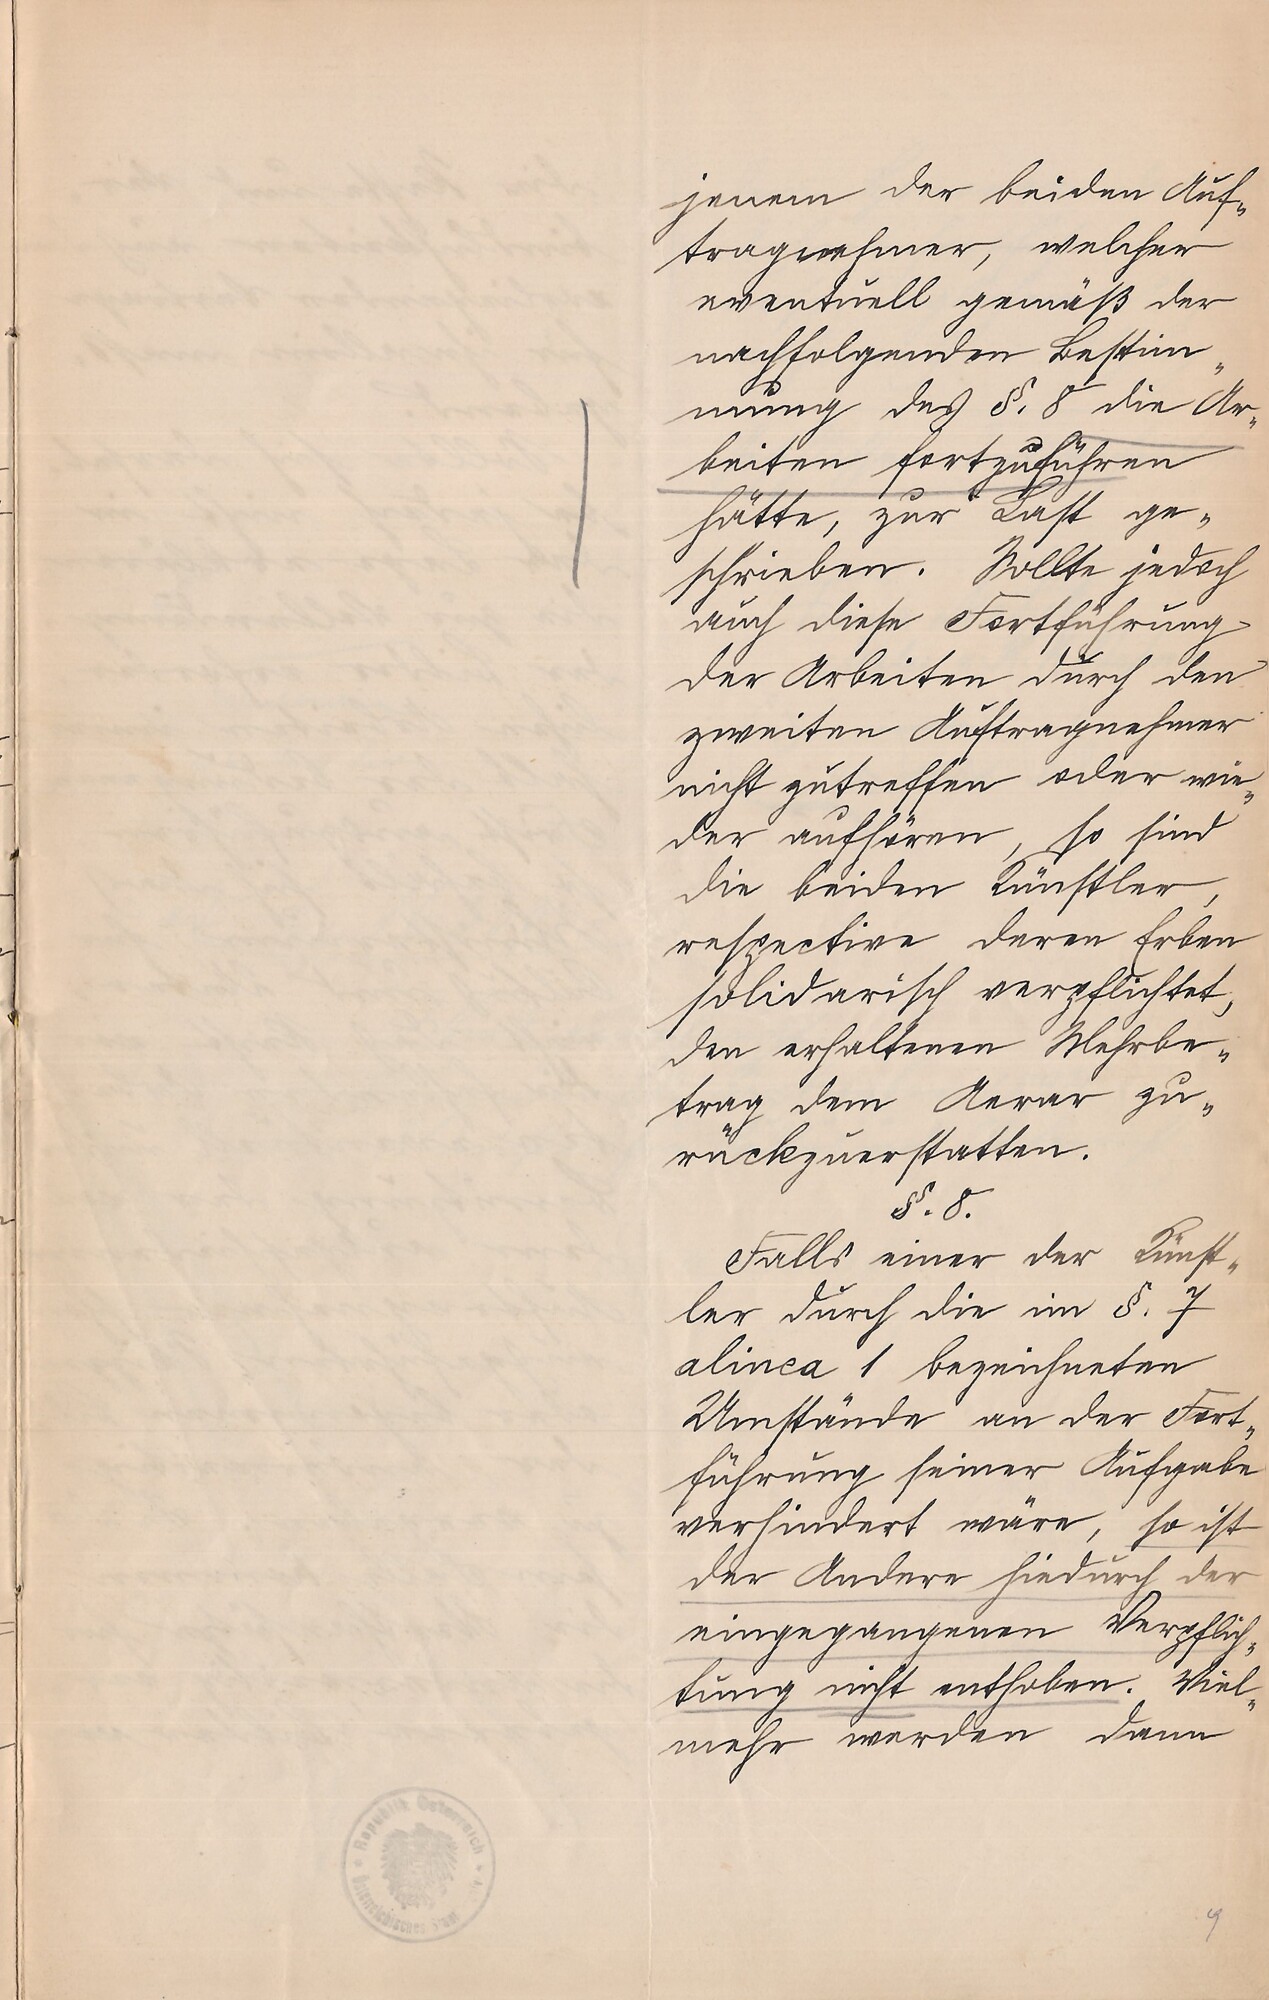 jenem der beiden Auf-
tragnehmer, welcher
eventuell gemäß der
nachfolgenden Bestim-
mung des §. 8 die Ar-
beiten fortzuführen
hätte, zur Last ge-
schrieben. Sollte jedoch
auch diese Fortführung
der Arbeiten durch den
zweiten Auftragnehmer
nicht zutreffen oder wie-
der aufhören, so sind
die beiden Künstler,
respective deren Erben
solidarisch verpflichtet,
den erhaltenen Mehrbe-
trag dem Aerar zu-
rückzuerstatten.
§. 8.
Falls einer der Künst-
ler durch die im §. 7
alinea 1 bezeichneten
Umstände an der Fort-
führung seiner Aufgabe
verhindert wäre, so ist
der Andere hiedurch der
eingegangenen Verpflich-
tung nicht enthoben. Viel-
mehr werden dann
Republik Österreich
Österreichisches
9